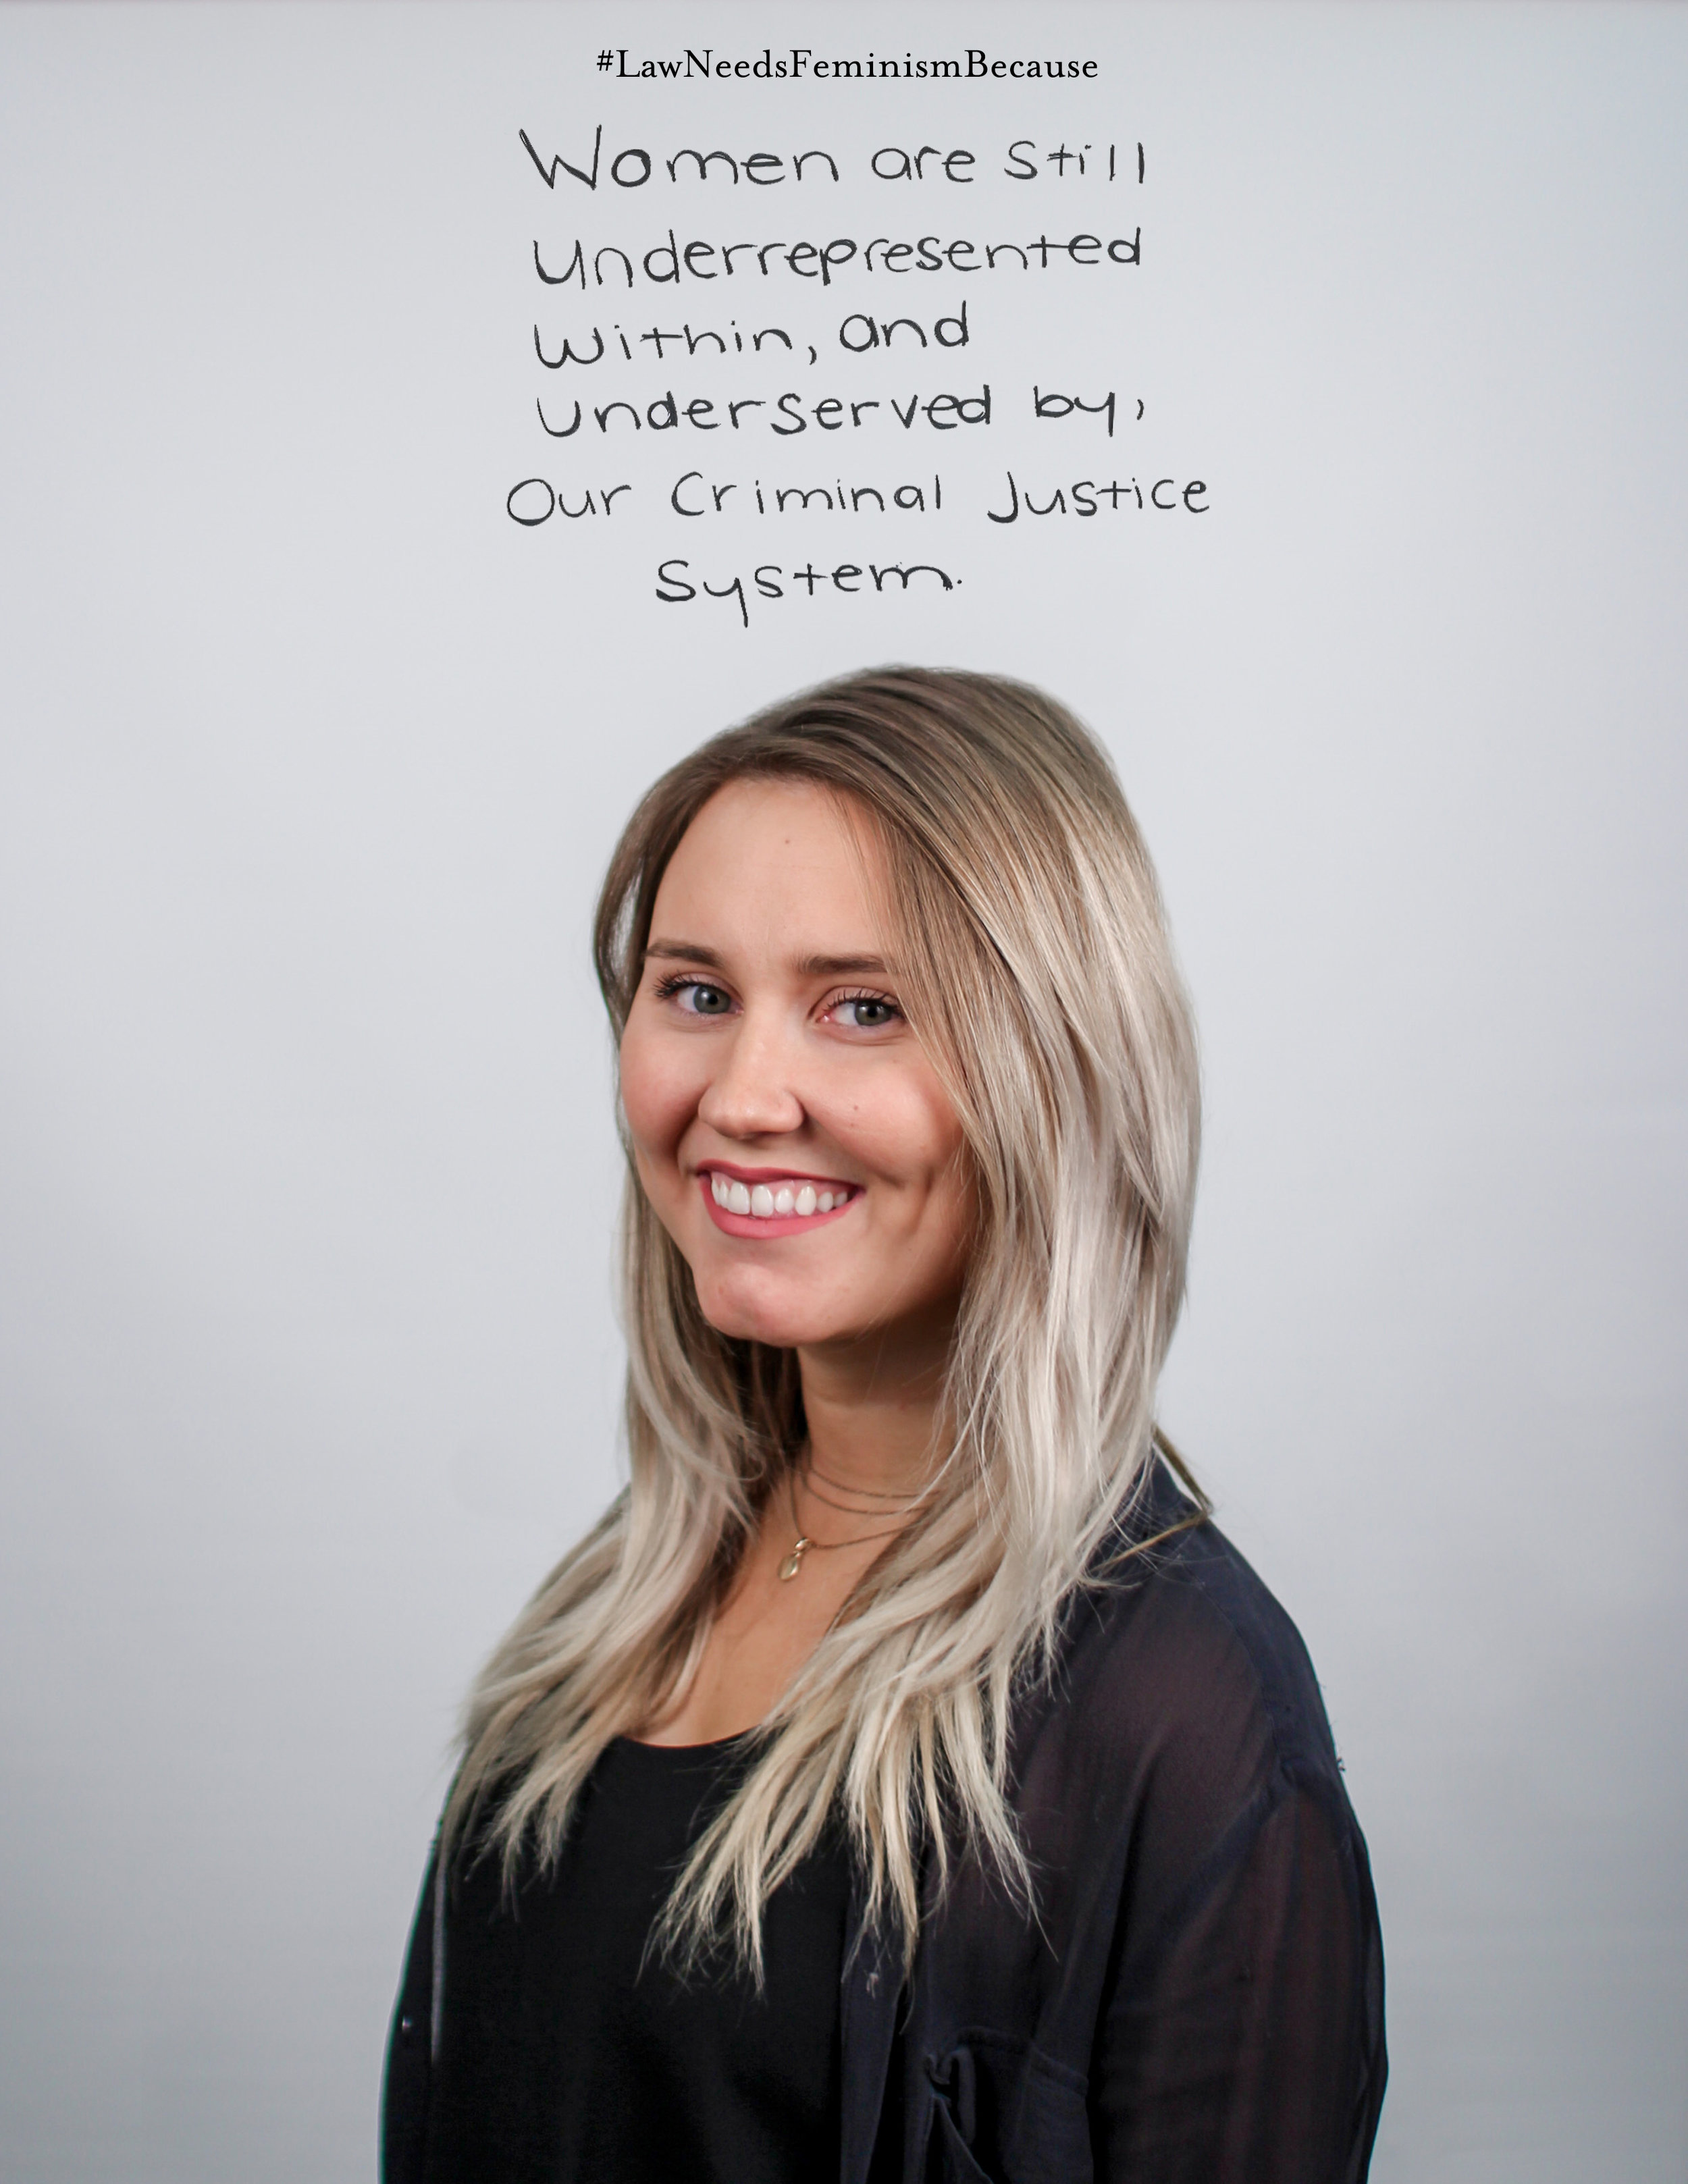 #LawNeedsFeminismBecause
Women are still
Underrepresented
Within, and
Underserved by,
Our Criminal Justice
System.